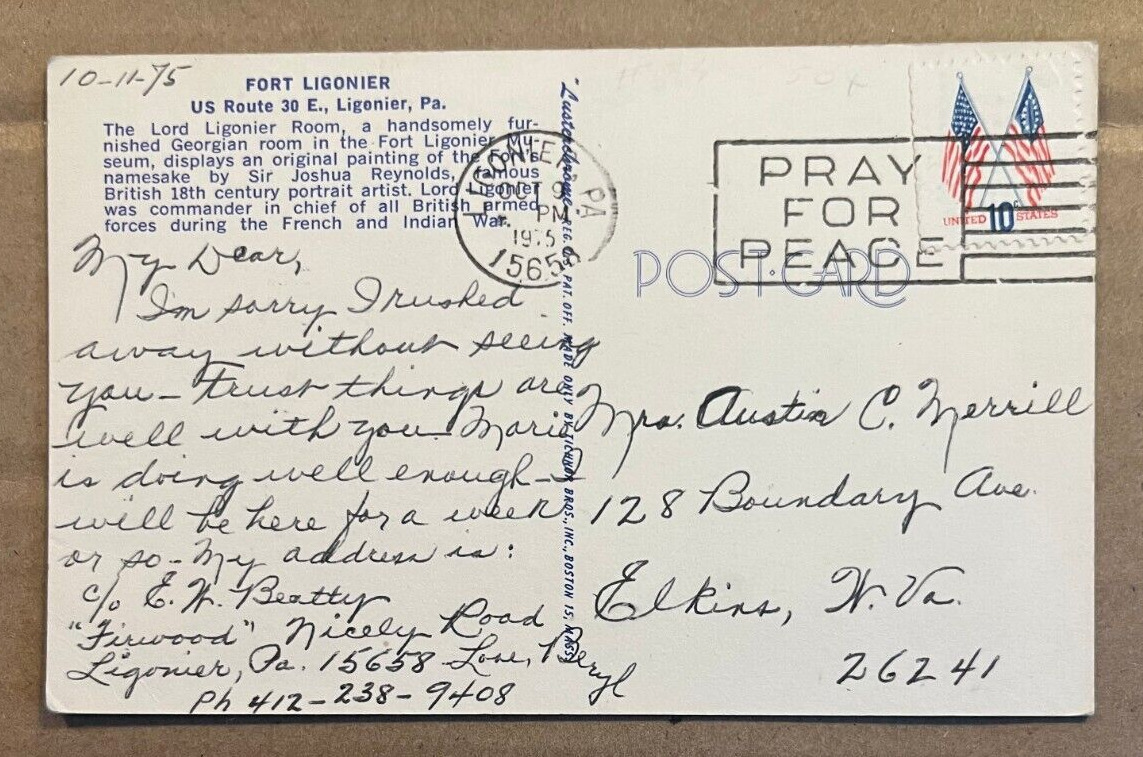 10-11-75
FORT LIGONIER
US Route 30 E., Ligonier, Pa.
The Lord Ligonier Room, a handsomely fur-
nished Georgian room in the Fort Ligonier Mu-
seum, displays an original painting of the Fort's
namesake by Sir Joshua Reynolds, famous
British 18th century portrait artist. Lord Ligonier
was commander in chief of all British armed
forces during the French and Indian War.
My Dear,
I'm sorry I rushed
away without seeing
you - trust things are
well with you. Marie
is doing well enough - I
will be here for a week
or so - My address is:
c/o E. W. Beatty
"Firwood" Nicely Road
Ligonier, Pa. 15658 Love, Beryl
Ph 412-238-9408
"Lusterchrome" REG. U.S. PAT. OFF. MADE ONLY BY TICHNOR BROS., INC., BOSTON 15, MASS.
LIGONIER PA
OCT 9
PM
1975
15658
PRAY
FOR
PEACE
UNITED 10c STATES
POST CARD
Mrs. Austin C. Merrill
128 Boundary Ave.
Elkins, W. Va.
26241